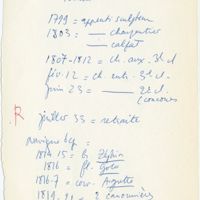 1799 = apprenti sculpteur
1803 = —— charpentier
—— calfat
1807-1812 = ch. aux. 3e cl
fév. 12 = ch. ent. 3e cl.
juin 23 = —— 2e cl.
(concours
R juillet 33 = retraite
navigue bcp =
1814 15 = b Zéphir
1816 = fl. Golo
1816-7 = corv. Aigrette
1819-21 = 2 canonnières